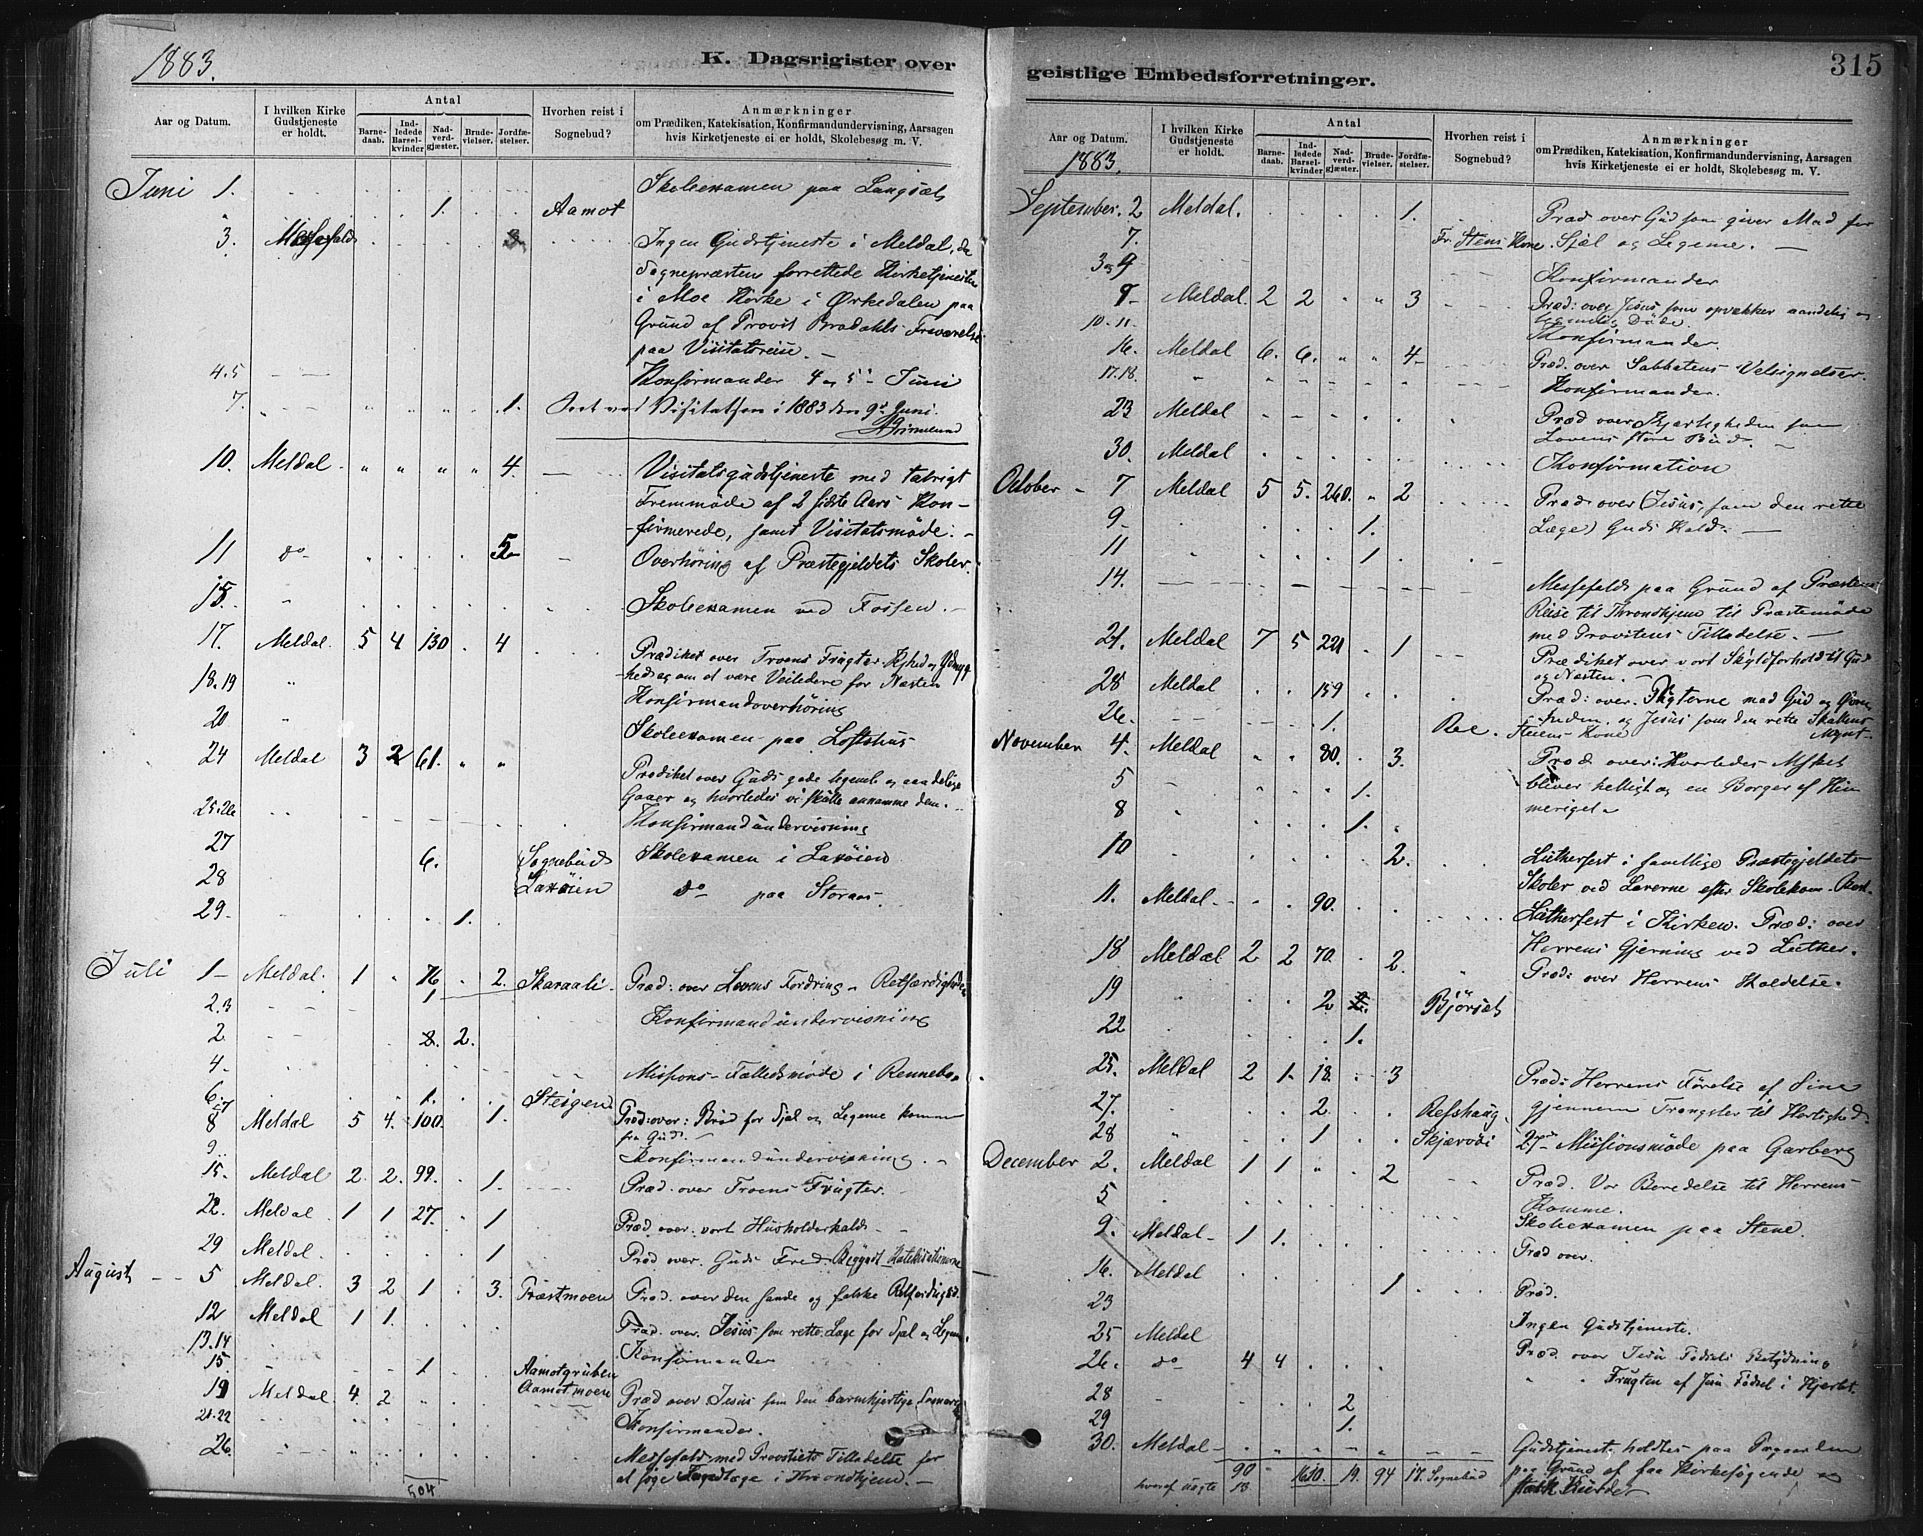 1883.
K. Dagsrigister over
Aar og Datum.
I hvilken Kirke Gudstjeneste er holdt.
Antal
Barnedaab.
Indledede Barselkvinder
Nadverdgjæster.
Brudevielser.
Jordfæstelser.
Hvorhen reist i Sognebud?
Anmærkninger
om Prædiken, Katekisation, Konfirmandundervisning, Aarsagen
hvis Kirketjeneste ei er holdt, Skolebesøg m. V.
Juni 1. Skoleexamen paa Langsæt
1. Aamot
3. Messefald Ingen Gudstjeneste i Meldal, da
Sognepræsten forrettede Kirketjenesten
i Moe Kirke i Ørkedalen paa
Grund af Provst Brodahls Fraværelse
paa Visitatsreise. -
4.5 Konfirmander 4 og 5 Juni
7. 1. Seet ved Visitatsen i 1883 den 9de Juni.
Grimelund
10. Meldal 4. Visitatsgudstjeneste med talrigt
Fremmøde af 2 sidste Aars Kon-
-firmerede, samt Visitatsmøde. -
11 do 5 Overhøring af Præstegjeldets Skoler.
15. Skoleexamen ved Fossen. -
17. Meldal. 5 4 130 4 Prædiket over Troens Frugter
-hed og om at være Veiledere for Næsten
18.19 Konfirmandoverhøring
20 Skoleexamen paa Loftshus
24 Meldal 3 2 61. Prædiket over Guds gode legemlige og aandelige
Gaver og hvorledes vi skulle annamme dem. -
25.26 Konfirmandundervisning
27 6. Sognebud Skolexamen i Laxøien
28 Laxøien do paa Storaas.
29 1.
Juli 1 Meldal. 1 76 2. Skaraali. Præd: over Lovens Fordring - Retfærdigheden
1
2.3 Konfirmandundervisning
2. 2. 2.
4. Missions-Fællesmøde i Rennebo.
6. 1. Steigen
8 Meldal 5 4. 100. 1. Præd: over: Brød for Sjæl og Legeme komme
fra Gud. -
9 Konfirmandundervisning. -
15. Meldal 2. 2. 99. 1. Præd. over Troens Frugter.
22. Meldal 1 1 27. 1 Præd. over: vort Husholderkald -
29 Meldal. 1 Præd over. Guds Fred
August 5 Meldal. 3 2 1 3. Præstmoen Præd. over den sande og falske Retfærdighed.
12 Meldal 1 1. Præd. over. Jesus som rette Læge for Sjæl og Legem.
13.14 Konfirmander
15 1 Aamotgruben
19 Meldal. 4. 2 Aamotmoen Præd over Jesus som den barmhjertige
21.22 Konfirmander.
26. Messefald med Provstiets Tilladelse for
at søge Læge i Throndhjem. -
504
geistlige Embedsforretninger.
315
Aar og Datum.
1883.
I hvilken Kirke Gudstjeneste er holdt.
Antal
Barnedaab.
Indledede Barselkvinder
Nadverdgjæster.
Brudevielser.
Jordfæstelser.
Hvorhen reist i Sognebud?
Anmærkninger
om Prædiken, Katekisation, Konfirmandundervisning, Aarsagen
hvis Kirketjeneste ei er holdt, Skolebesøg m. V.
September. 2 Meldal. 1. Præd over Gud som giver Mad for
7. Fr. Stens Kone. Sjæl og Legeme. -
3 og 4 Konfirmander
9 Meldal. 2 2 3 Præd: over Jesus som opvækker aandelig og
legemlig Døde.
10-11 Konfirmander.
16. Meldal 6. 6. 4 Præd. over Sabbatens Velsignelser.
17.18. Konfirmander.
23 Meldal Præd over Kjærligheden som
Lovens store Bud. -
30. Meldal Konfirmation
October 7 Meldal 5 5. 260. 2 Præd over (Jesus, som den rette
9 1. Læge) Guds Kald. -
11 1
14. Messefald paa Grund af Præstens
Reise til Throndhjem til Præstemøde
med Provstens Tilladelse. -
21. Meldal 7 5 221 1 Prædiket over vort Skyldforhold til Gud
og Næsten. -
28 Meldal 159 Præd: over. Pligterne mod Gud og Øvrig
26. 1. Roe. -heden og Jesus som den rette Skattens
Steens Kone Mynt.
November 4. Meldal 80. 3. Præd over: Hvorledes Mskt
5 1. bliver helligt og en Borger af Him
8 1. meriget. -
10 2. Lutherfest i samtlige Præstegjeldets
Skoler ved Lærerne efter Skolekom.
11. Meldal 90. Lutherfest i Kirken. Præd: over
Herrens Gjerning ved Luther.
18 Meldal 2 2 70. 2. Præd: over Herrens Kaldelse.
19 2 Bjørset
22 1.
25. Meldal 2 1. 18. 3 Præd: Herrens Førelse af Sine
27. 2. Refshaug. gjennem Trængsler til Herlighed.
28 1 Skjærvøi 27 Missionsmøde paa Garberg
December 2. Meldal 1 1 2 Præd. Vor Beredelse til Herrens
Komme.
5 Skoleexamen paa Stene.
9. Meldal 1 1. Præd over.
16. Meldal 1 Præd.
23 Ingen Gudstjeneste.
25 Meldal Præd. over Jesu Fødsels Betydning
26. do 4 4 Frugten af Jesu Fødsel i Hjertet.
28 2
29 1.
30. Meldal Gudstjenest. holdtes paa
90 1610. 19. 94 17. Sognebud paa Grund af faa Kirkesøgende
hvoraf uægte 13.
stærk Kulde